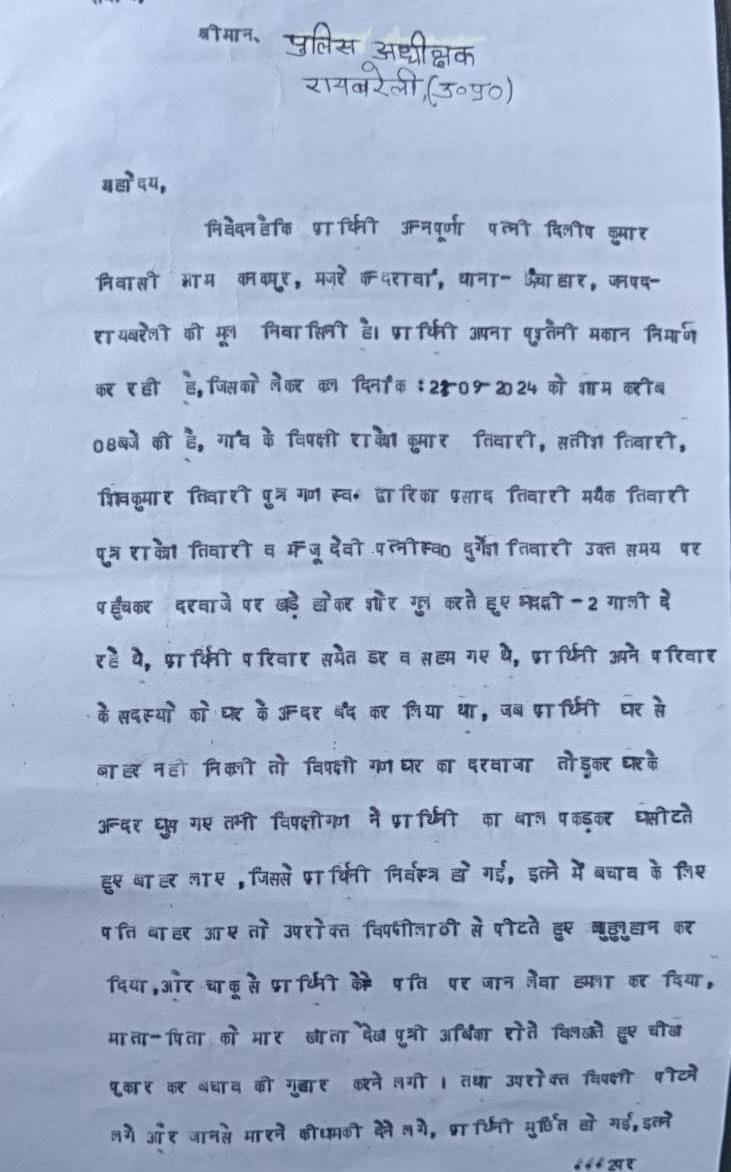 श्रीमान, पुलिस अधीक्षक
रायबरेली,(उ०प्र०)
महोदय,
निवेदन है कि प्रार्थिनी अन्नपूर्णा पत्नी दिलीप कुमार
निवासी ग्राम कनकपुर, मजरे कन्दरावां, थाना- ऊंचाहार, जनपद-
रायबरेली की मूल निवासिनी है। प्रार्थिनी अपना पुश्तैनी मकान निमार्ण
कर रही है, जिसको लेकर कल दिनांक : -09-2024 को शाम करीब
08बजे की है, गांव के विपक्षी राकेश कुमार तिवारी, सतीश तिवारी,
शिवकुमार तिवारी पुत्र गण स्व० द्वारिका प्रसाद तिवारी मयंक तिवारी
पुत्र राकेश तिवारी व मन्जू देवी पत्नीस्व० दुर्गेश तिवारी उक्त समय पर
पहुंचकर दरवाजे पर खड़े होकर शोर गुल करते हुए भद्दी -2 गाली दे
रहे थे, प्रार्थिनी परिवार समेत डर व सहम गए थे, प्रार्थिनी अपने परिवार
के सदस्यो को घर के अन्दर बंद कर लिया था, जब प्रार्थिनी घर से
बाहर नही निकली तो विपक्षी गण घर का दरवाजा तोड़कर घर के
अन्दर घुस गए तभी विपक्षीगण ने प्रार्थिनी का बाल पकड़कर घसीटते
हुए बाहर लाए, जिससे प्रार्थिनी निर्वस्त्र हो गई, इतने में बचाव के लिए
पति बाहर आए तो उपरोक्त विपक्षीलाठी से पीटते हुए लुहुलुहान कर
दिया, और चाकू से प्रार्थिनी के पति पर जान लेवा हमला कर दिया,
माता-पिता को मार खाता देख पुत्री अर्बिका रोते विलखते हुए चीख
पुकार कर बचाव की गुहार करने लगी। तथा उपरोक्त विपक्षी पीटने
लगे और जानसे मारने कीधमकी देने लगे, प्रार्थिनी मुर्छित हो गई, इतने